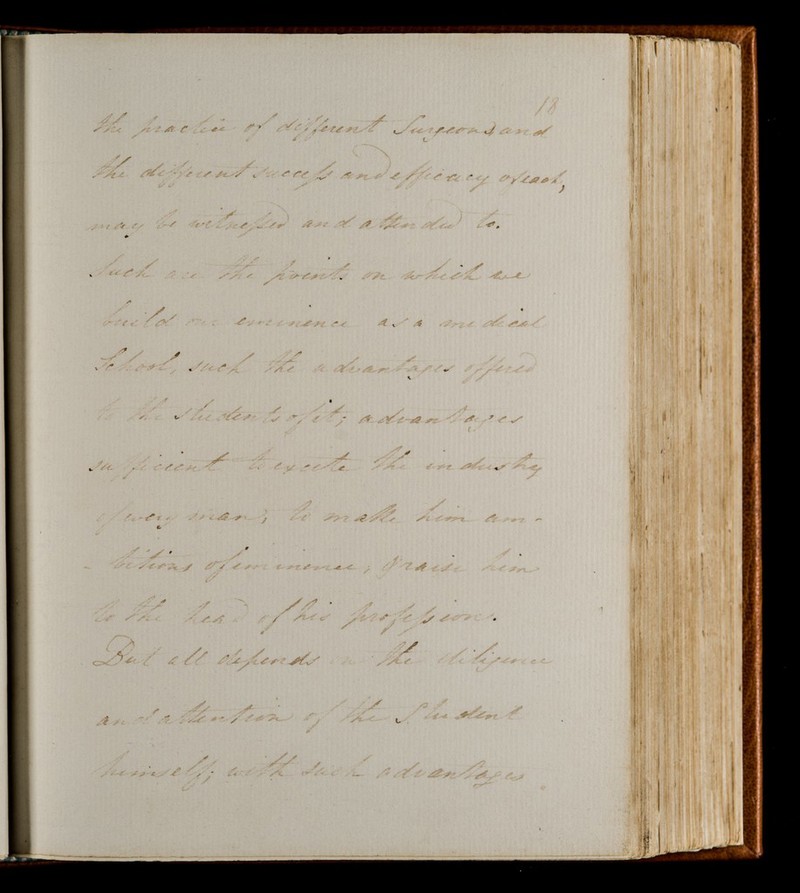 18
the practice of different Surgeons and
the different success and efficacy of each,
may be witnessed and attended to.
Such are the points on which we
build our eminence as a medical
School, such the advantages offered
to the students of it; advantages
sufficient to excite the industry
of every man; to make him am-
-bitious of eminence, & raise him
to the head of his profession.
But all depends on the diligence
and attention of the Student
himself; with such advantages